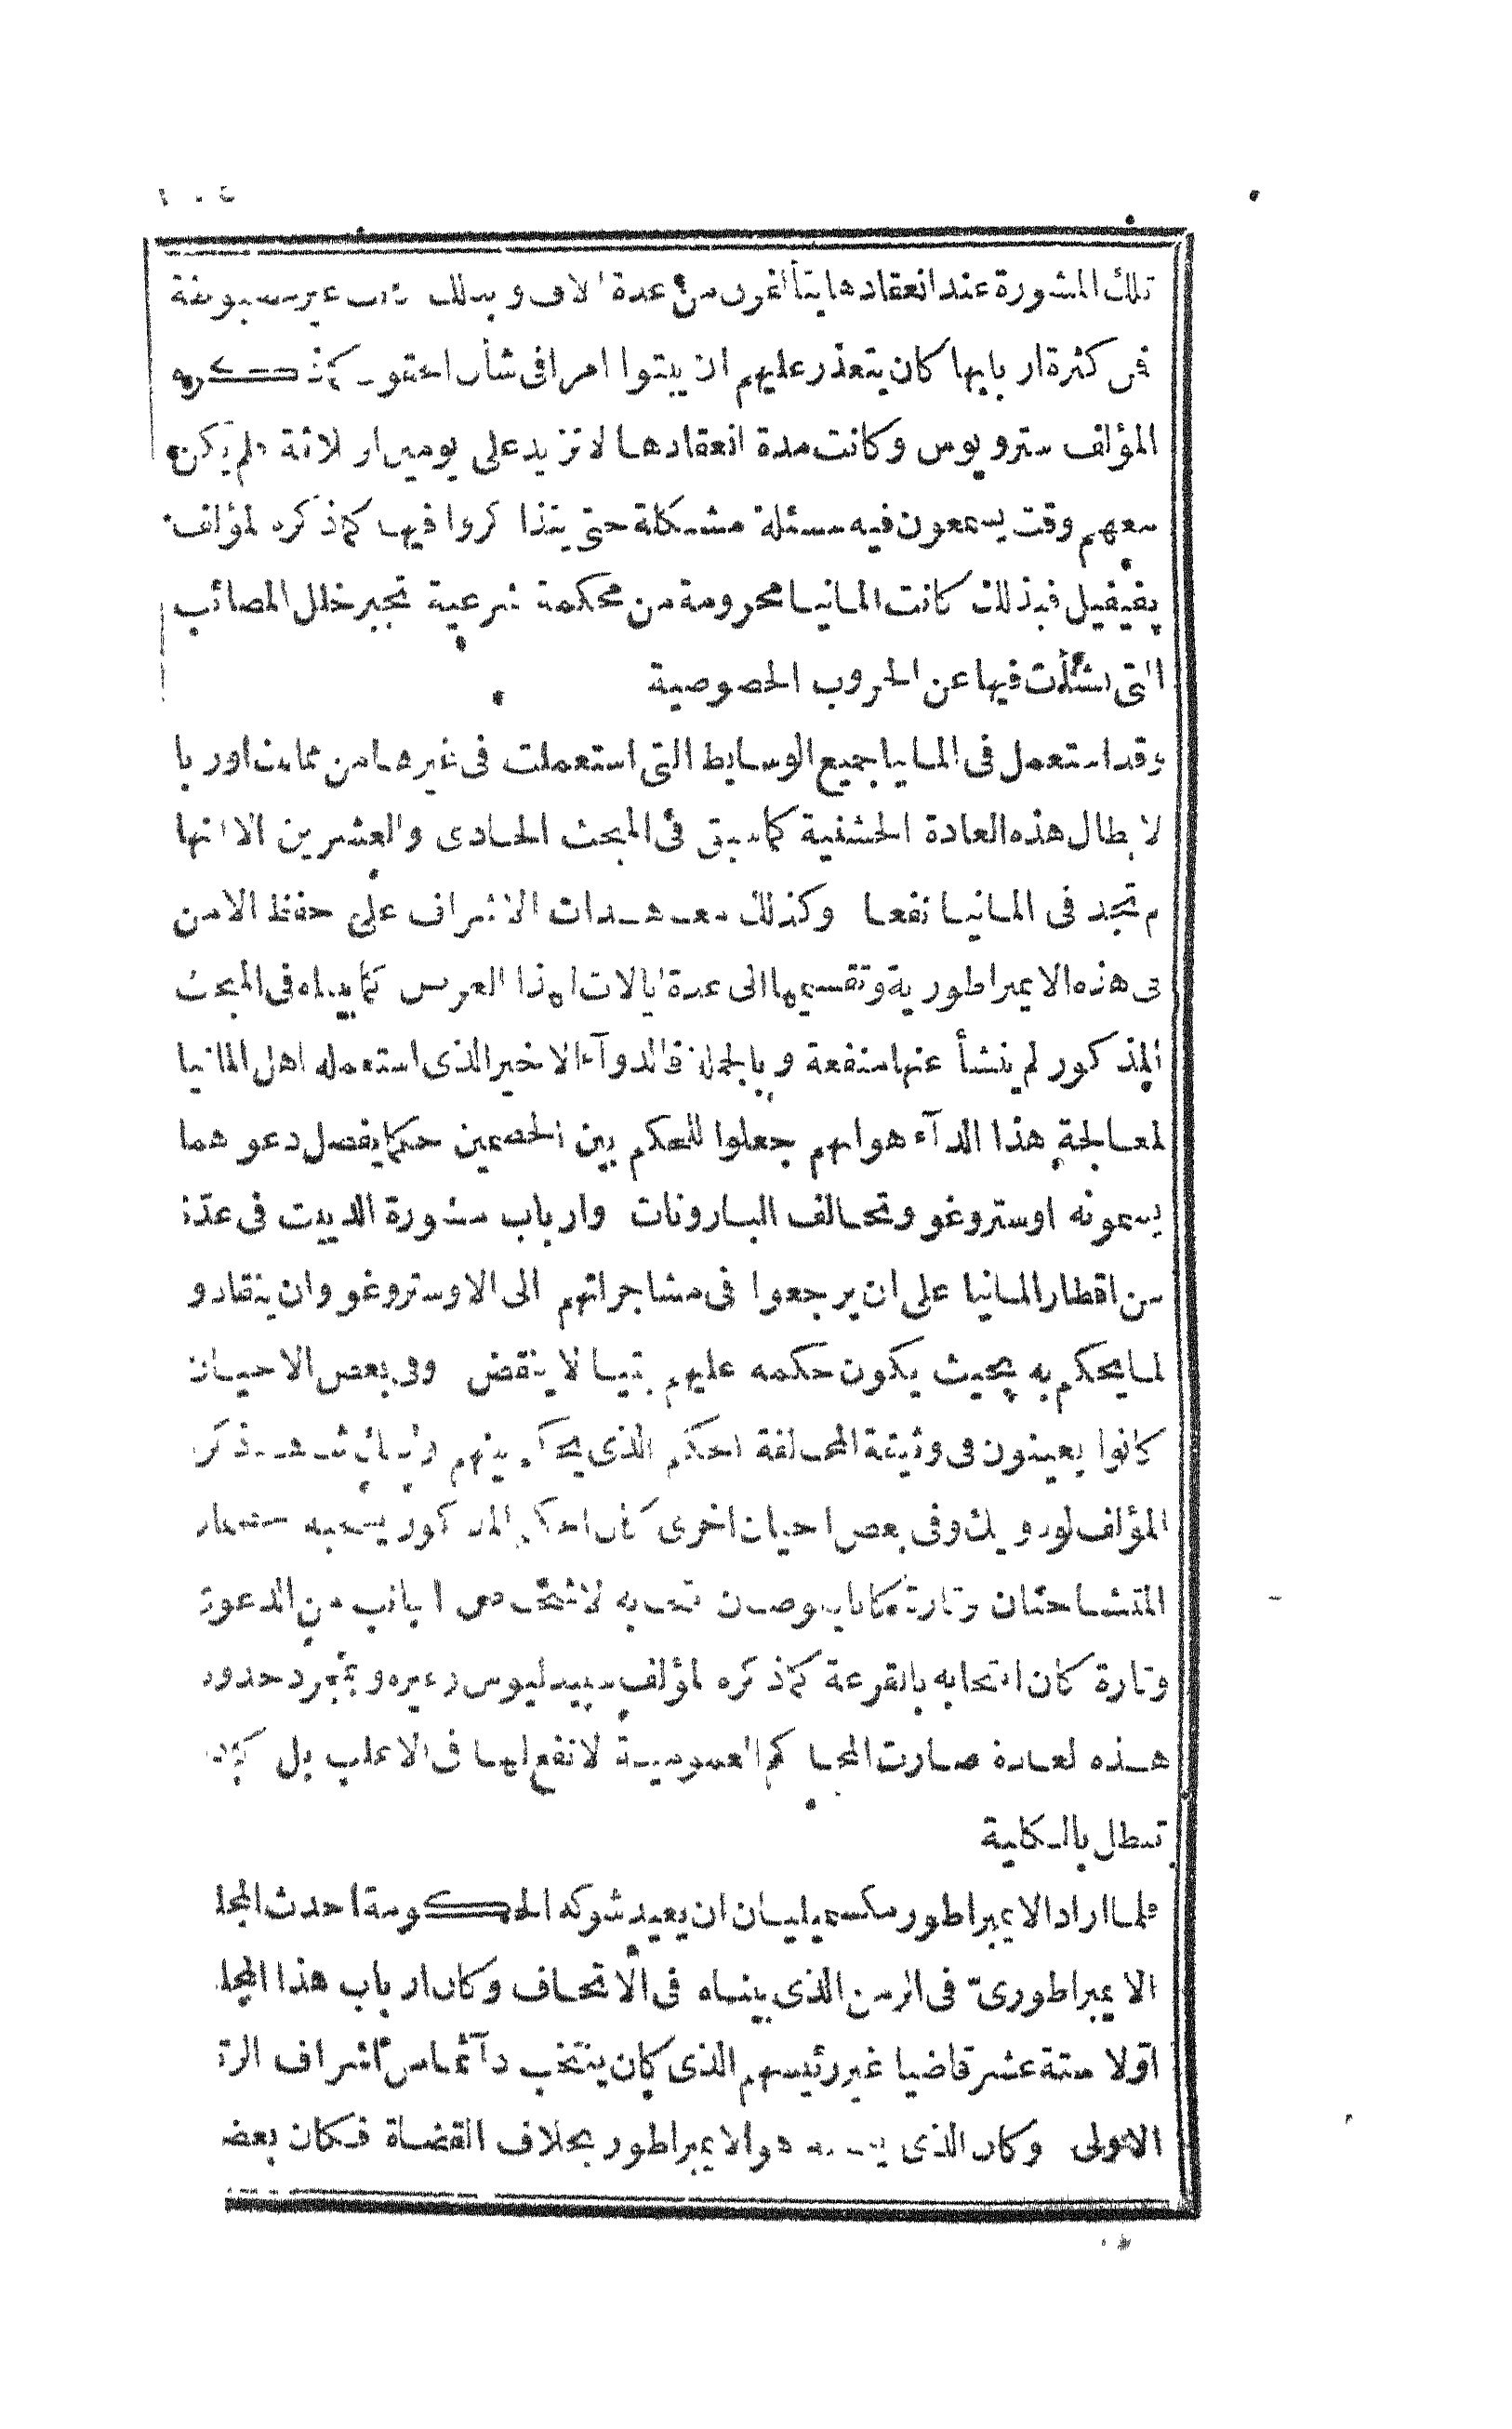 ٤٠١
تلك المشورة عند انعقادها يتألفون من عدة آلاف وبذلك كانت غير مسبوقة
فى كثرة اربابها كان يتعذر عليهم ان يبتوا امرا فى شأن الحقوق كما ذكره
المؤلف سترويوس وكانت مدة انعقادها لا تزيد على يومين او ثلاثة ولم يكن
معهم وقت يسمعون فيه مسئلة مشكلة حتى يتذاكروا فيها كما ذكره المؤلف
پفيفيل فبذلك كانت المانيا محرومة من محكمة شرعية تجبر خلل المصائب
التى نشأت فيها عن الحروب الخصوصية
وقد استعمل فى المانيا جميع الوسايط التى استعملت فى غيرها من ممالك اوربا
لابطال هذه العادة الخشنية كما سبق فى المبحث الحادى والعشرين الا انها
لم تجد فى المانيا نفعا وكذلك معاهدات الاشراف على حفظ الامن
فى هذه الايمبراطورية وتقسيمها الى عدة ايالات لهذا الغرض كما بيناه فى المبحث
المذكور لم ينشأ عنها منفعة وبالجملة فالدوآء الاخير الذى استعمله اهل المانيا
لمعالجة هذا الدآء هو انهم جعلوا للحكم بين الخصمين حكما يفصل دعواهما
يسمونه اوستروغو وتحالف البارونات وارباب مشورة الدييت فى عدة
من اقطار المانيا على ان يرجعوا فى مشاجراتهم الى الاوستروغو وان ينقادوا
لما يحكم به بحيث يكون حكمه عليهم بتيا لا ينقض وفى بعض الاحيان
كانوا يعينون فى وثيقة المحالفة الحكم الذى يحكم بينهم
المؤلف لودويك وفى بعض احيان اخرى كان الحكم المذكور ينتخبه
المتشاحنان وتارة كانا يفوضان
وتارة كان انتخابه بالقرعة كما ذكره المؤلف سپيدليوس وغيره وبمجرد حدوث
هذه العادة صارت المحاكم العمومية لا نفع لها فى الاغلب بل كادت
تبطل بالكلية
فلما اراد الايمبراطور مكسيميليان ان يعيد شوكة الحكومة احدث المجلس
الايمبراطورى فى الزمن الذى بيناه فى الاتحاف وكان ارباب هذا المجلس
اولا ستة عشر قاضيا غير رئيسهم الذى كان ينتخب دآئما من اشراف الرتبة
الاولى وكان الذى ينتخبه هو الايمبراطور بخلاف القضاة فكان بعضهم